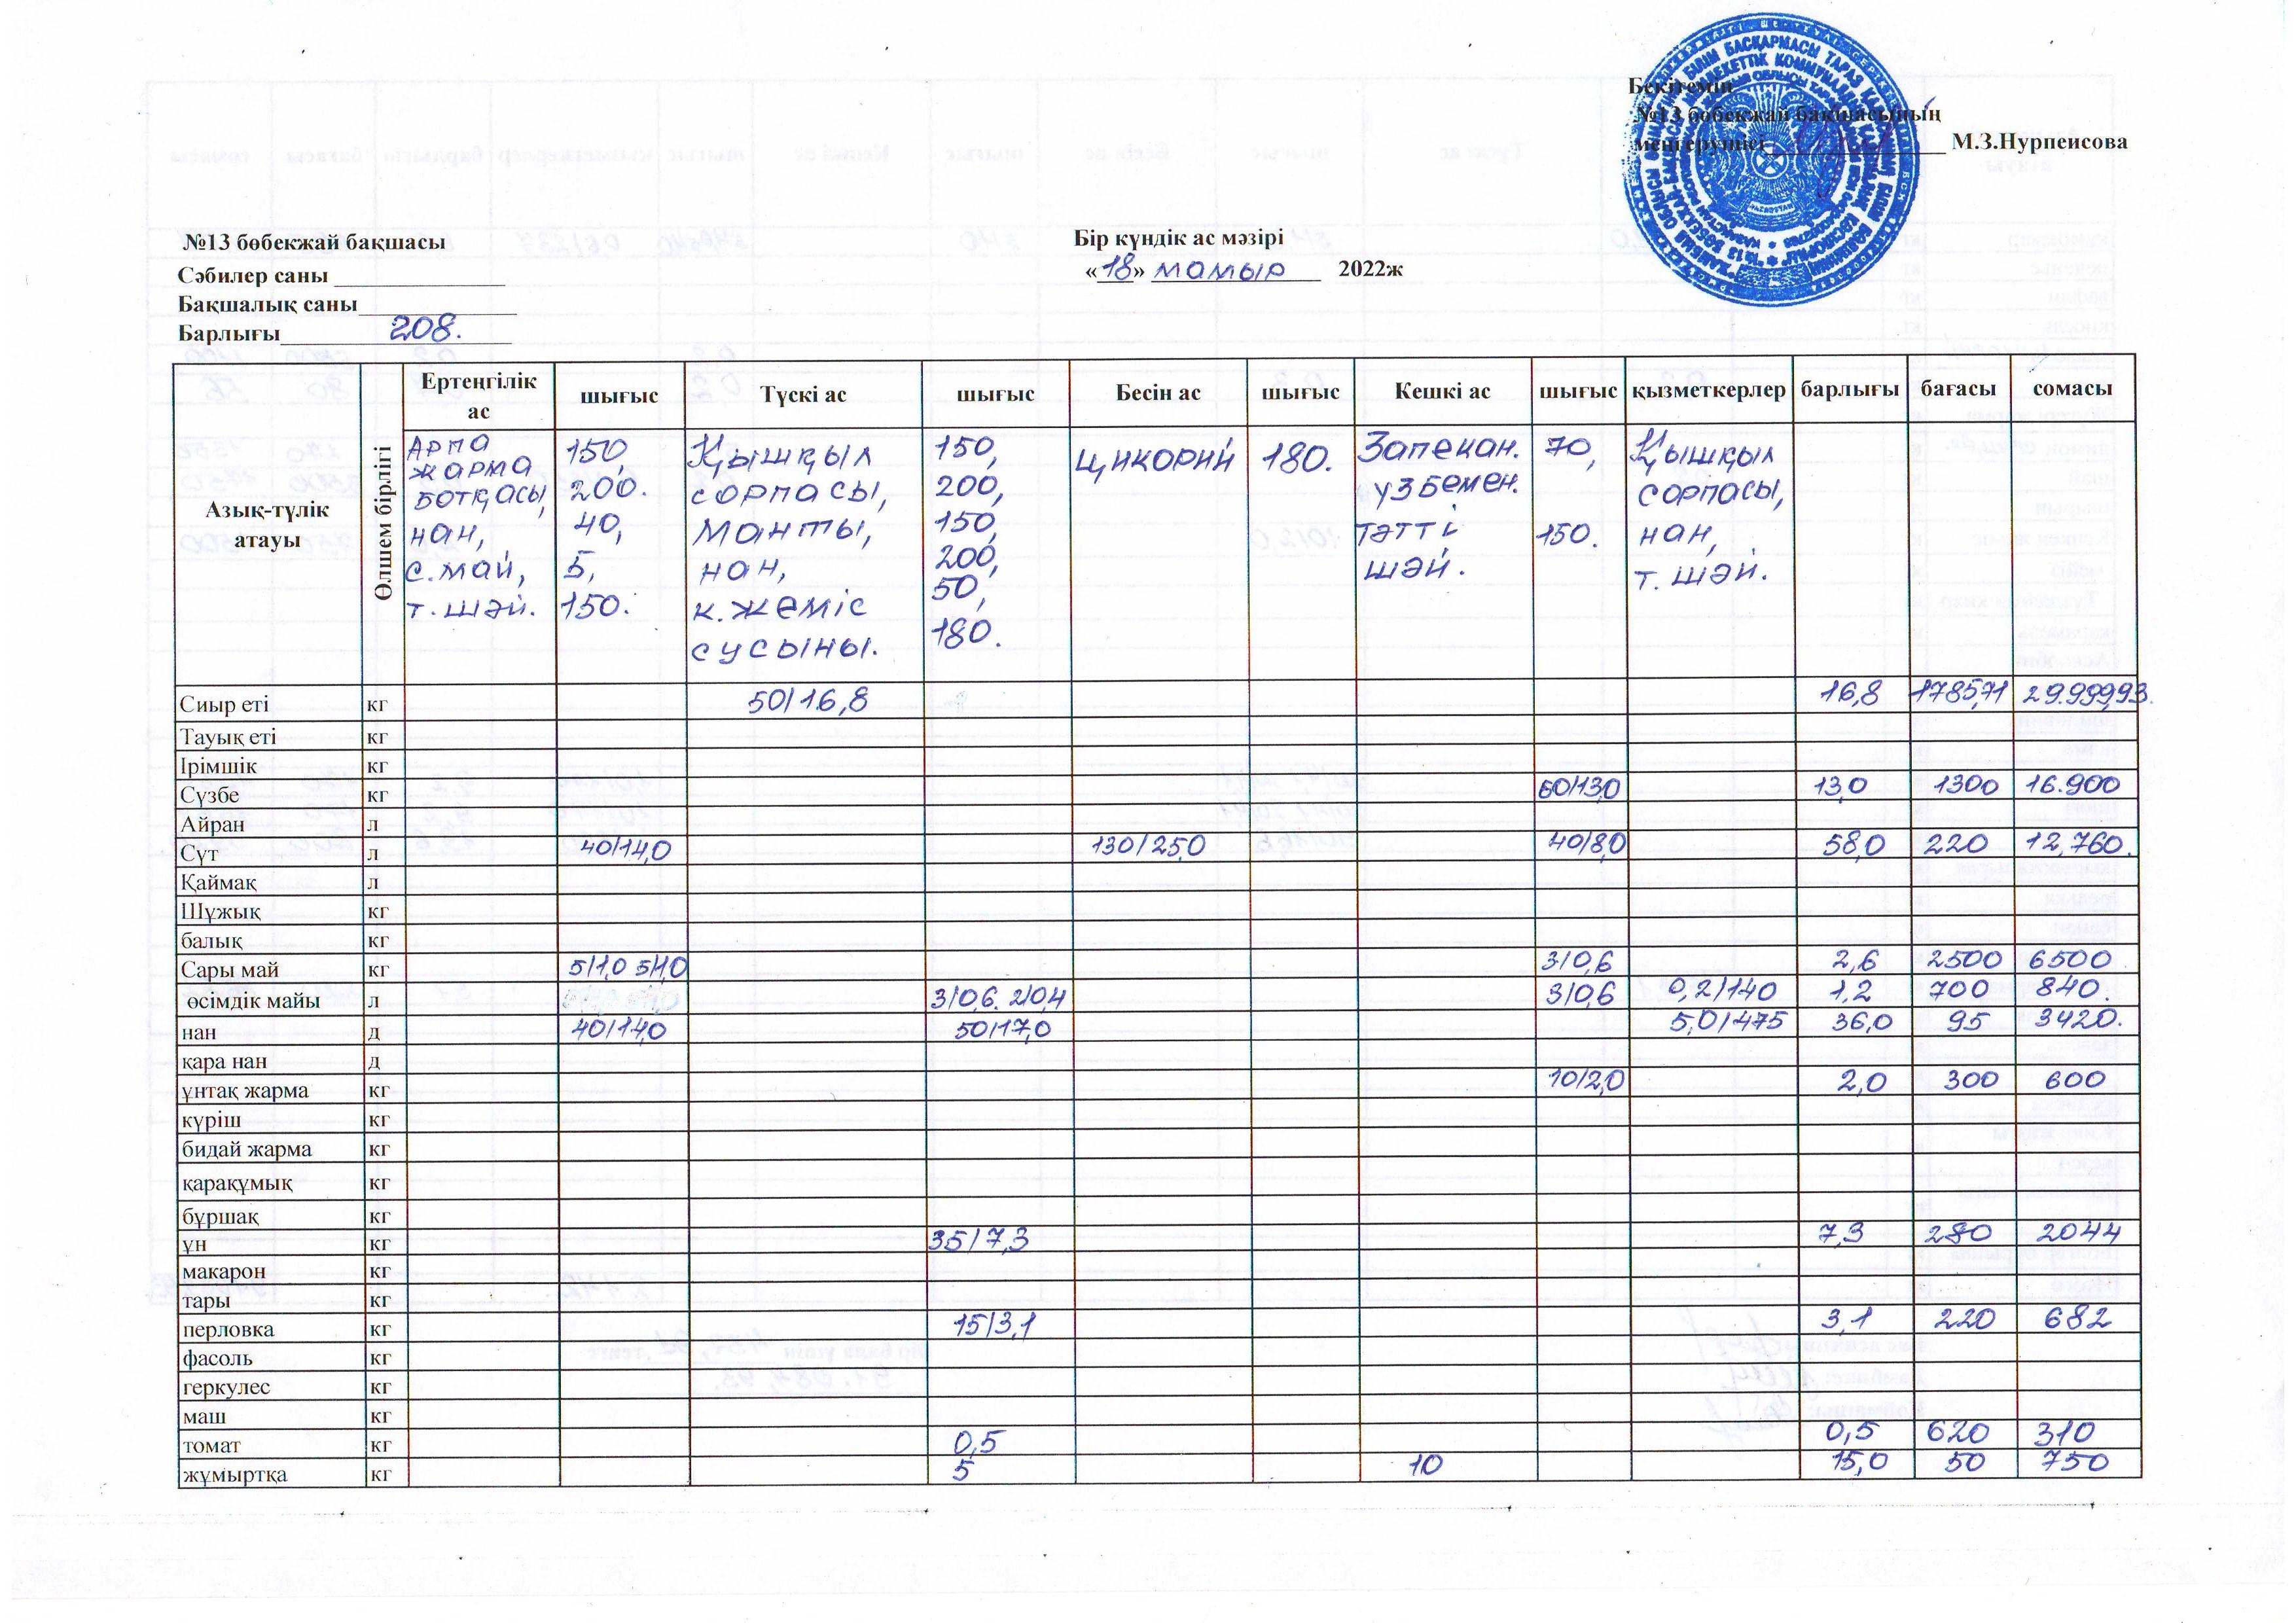 Бекітемін
№13 бөбекжай бақшасының
меңгерушісі ______________ М.З.Нурпеисова
№13 бөбекжай бақшасы
Бір күндік ас мәзірі
Сәбилер саны ______________
«18» мамыр 2022ж
Бақшалық саны______________
Барлығы 208.
Азық-түлік атауы Өлшем бірлігі Ертеңгілік ас шығыс Түскі ас шығыс Бесін ас шығыс Кешкі ас шығыс қызметкерлер барлығы бағасы сомасы
Арпа жарма ботқасы, нан, с.май, т.шәй.
150, 200. 40, 5, 150.
Қышқыл сорпасы, манты, нан, к.жеміс сусыны.
150, 200, 150, 200, 50, 180.
цикорий
180.
Запекан. үзбемен. тәтті шәй.
70, 150.
Қышқыл сорпасы, нан, т.шәй.
Сиыр еті кг 50/16,8 16,8 1785,71 29.999,93.
Тауық еті кг
Ірімшік кг
Сүзбе кг 60/13,0 13,0 1300 16.900
Айран л
Сүт л 40/14,0 130/25,0 40/8,0 58,0 220 12,760.
Қаймақ л
Шұжық кг
балық кг
Сары май кг 5/1,0 5/1,0 3/0,6 2,6 2500 6500
өсімдік майы л 3/0,6. 2/0,4 3/0,6 0,2/140 1,2 700 840.
нан д 40/14,0 50/17,0 5,0/475 36,0 95 3420.
қара нан д
ұнтақ жарма кг 10/2,0 2,0 300 600
күріш кг
бидай жарма кг
қарақұмық кг
бұршақ кг
ұн кг 35/7,3 7,3 280 2044
макарон кг
тары кг
перловка кг 15/3,1 3,1 220 682
фасоль кг
геркулес кг
маш кг
томат кг 0,5 0,5 620 310
жұмыртқа кг 5 10 15,0 50 750